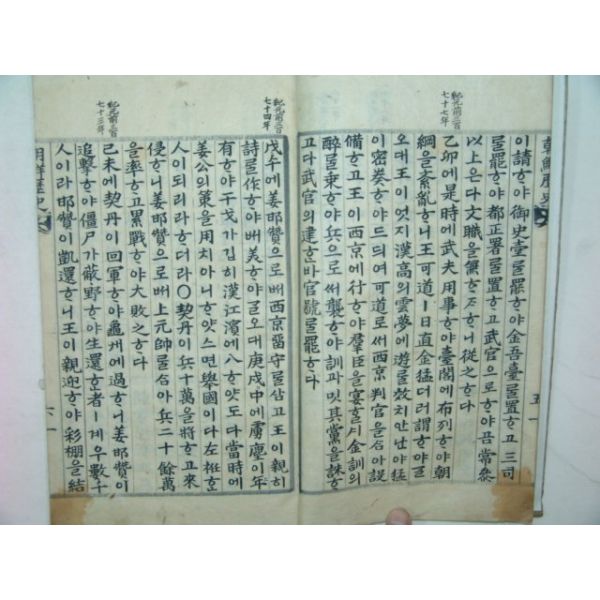 朝鮮歷史
五一
이請ᄒᆞ야御史臺ᄅᆞᆯ罷ᄒᆞ야金吾臺ᄅᆞᆯ置ᄒᆞ고三司
ᄅᆞᆯ罷ᄒᆞ야都正署ᄅᆞᆯ置ᄒᆞ고武官으로ᄒᆞ야곰常參
以上은다文職을兼ᄒᆞᄌᆞᄒᆞ니從之ᄒᆞ다
紀元前三百
七十七年
乙卯에是時에武夫用事ᄒᆞ야臺閣에布列ᄒᆞ야朝
綱을紊亂ᄒᆞ니王可道ㅣ日直金猛더러謂ᄒᆞ야ᄀᆞᆯ
오대王이엇지漢高의雲夢에遊ᄅᆞᆯ效치안난야猛
이密奏ᄒᆞ야드듸여可道로써西京判官을ᄉᆞᆷ아設
備ᄒᆞ고王이西京에行ᄒᆞ야羣臣을宴ᄒᆞᆯᄉᆡ金訓의
醉ᄅᆞᆯ乘ᄒᆞ야兵으로써襲ᄒᆞ야訓과밋其黨을誅ᄒᆞ
고다武官의建ᄒᆞᆫ바官號ᄅᆞᆯ罷ᄒᆞ다
紀元前三百
七十四年
戊午에姜邯贊으로ᄡᅥ西京留守ᄅᆞᆯᄉᆞᆷ고王이親히
詩ᄅᆞᆯ作ᄒᆞ야ᄡᅥ美ᄒᆞ야ᄀᆞᆯ오대庚戌中에虜塵이年
有ᄒᆞ야干戈가깁히漢江濱에入ᄒᆞ얏도다當時에
姜公의策을用치아니ᄒᆞ얏스면擧國이다左袵ᄒᆞᆫ
人이되리라ᄒᆞ더라〇契丹이兵十萬을將ᄒᆞ고來
侵ᄒᆞ니姜邯贊으로ᄡᅥ上元帥ᄅᆞᆯᄉᆞᆷ아兵二十餘萬
을率ᄒᆞ고累戰ᄒᆞ야大敗之ᄒᆞ다
紀元前三百
七十三年
己未에契丹이回軍ᄒᆞ야龜州에過ᄒᆞ니姜邯贊이
追擊ᄒᆞ야僵尸가蔽野ᄒᆞ야生還ᄒᆞᆫ者ㅣ계우數千
人이라邯贊이凱還ᄒᆞ니王이親迎ᄒᆞ야彩棚을結
朝鮮歷史
六一